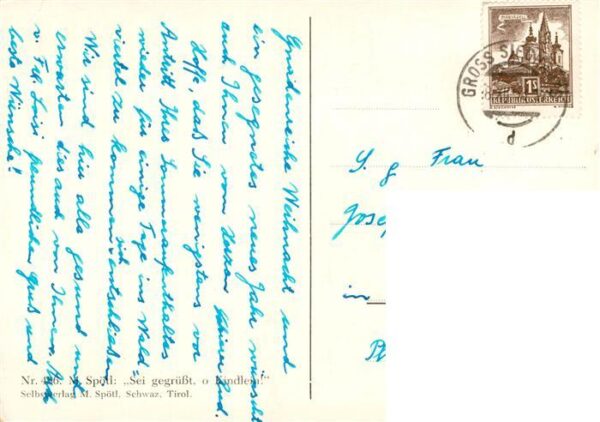 Gnadenreiche Weihnacht und
ein gesegnetes neues Jahr wünscht
auch Ihnen von Herzen
Hoffe, daß Sie wenigstens vor
Antritt Ihres Sommeraufenthaltes
wieder für einige Tage ins Wald=
viertel zu kommen sich entschließen
Wir sind hier alle gesund und
erwarten dies auch von Ihnen.
u. Frl. Luisi freundlichen Gruß und
beste Wünsche!
Nr. M. Spötl: „Sei gegrüßt, o Kindlein!"
Selbstverlag M. Spötl, Schwaz, Tirol.
MARIAZELL
1S
REPUBLIK ÖSTERREICH
GROSS
d
S. g. Frau
in